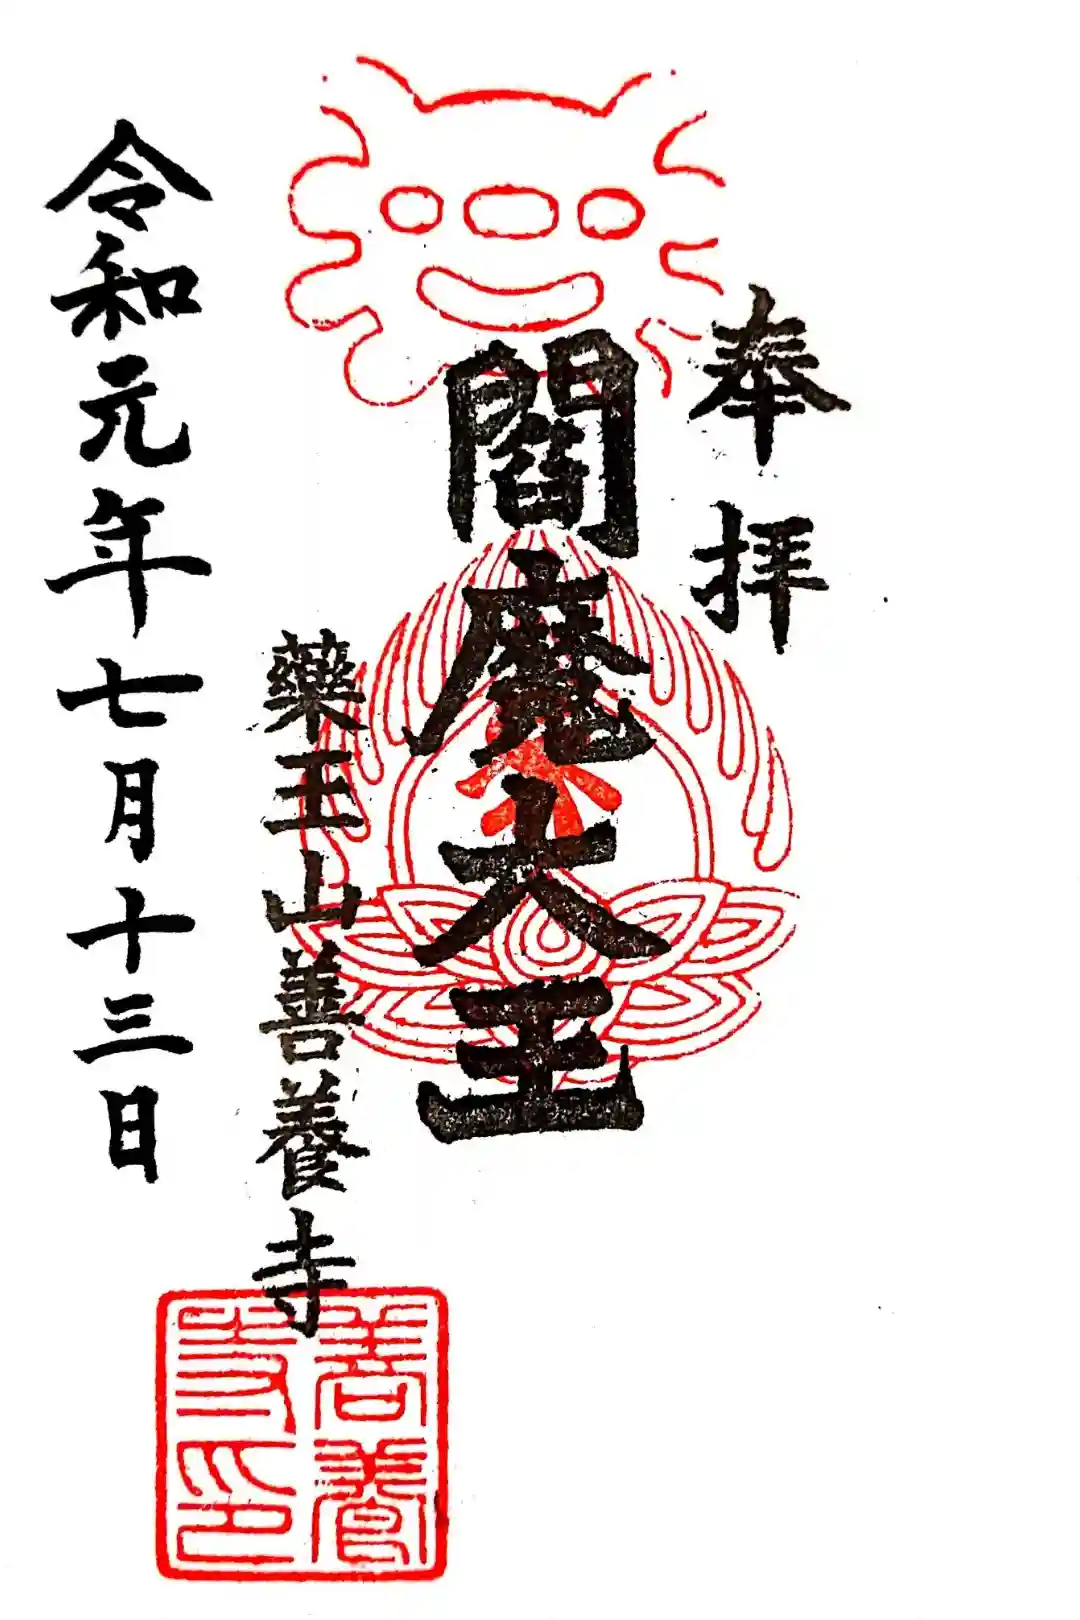 奉拝
閻魔大王
藥王山善養寺
令和元年七月十三日
善養
寺印